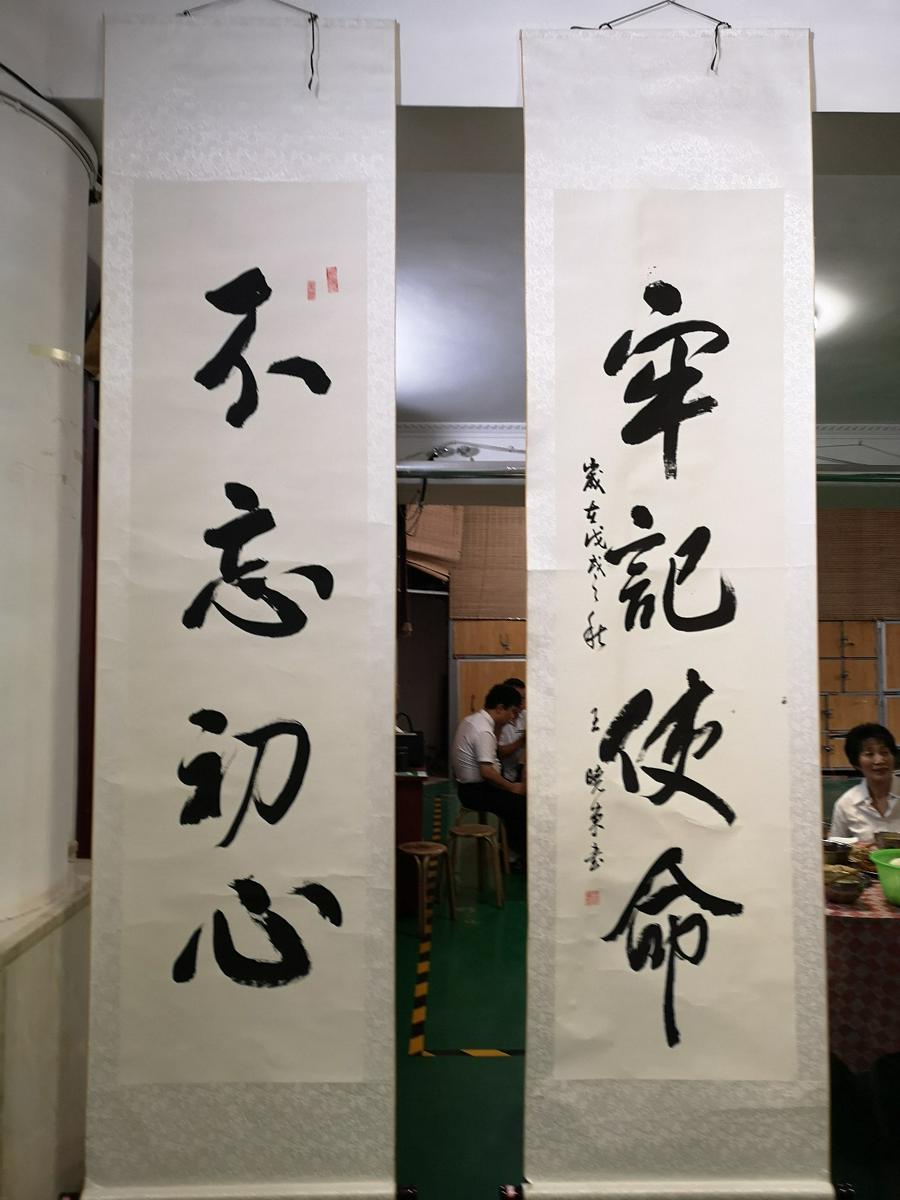 不忘初心
牢記使命
歲在戊戌之秋
王曉東書